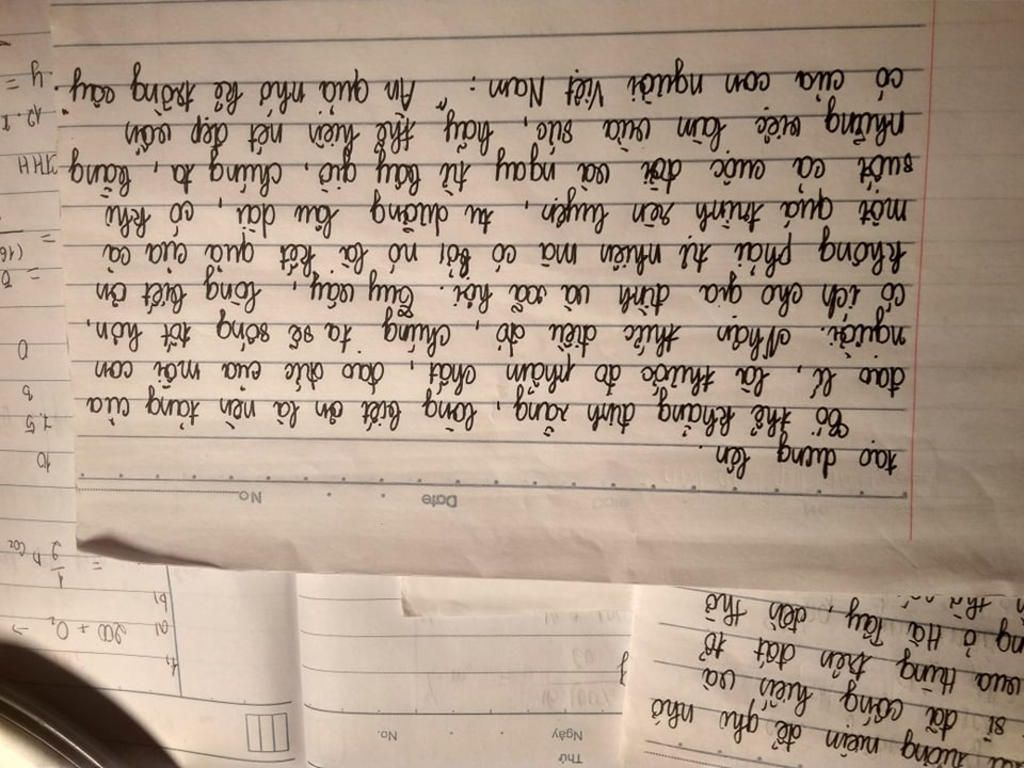 tưởng niệm để ghi nhớ
sĩ đã cống hiến và
vua Hùng trên đất tổ
ở Hà Tây, đền thờ
Thứ
Ngày No.
2CO + O₂ →
= 1/2 n CO₂
Date No.
tạo dựng lên.
Có thể khẳng định rằng, lòng biết ơn là nền tảng của
đạo lí, là thước đo phẩm chất, đạo đức của mỗi con
người. Nhận thức điều đó, chúng ta sẽ sống tốt hơn,
có ích cho gia đình và xã hội. Tuy vậy, lòng biết ơn
không phải tự nhiên mà có bởi nó là kết quả của cả
một quá trình rèn luyện, tu dưỡng lâu dài, có khi
suốt cả cuộc đời và ngay từ bây giờ, chúng ta, bằng
những việc làm vừa sức, hãy thể hiện nét đẹp vốn
có của con người Việt Nam: "Ăn quả nhớ kẻ trồng cây".
10
7,5
THH
y =